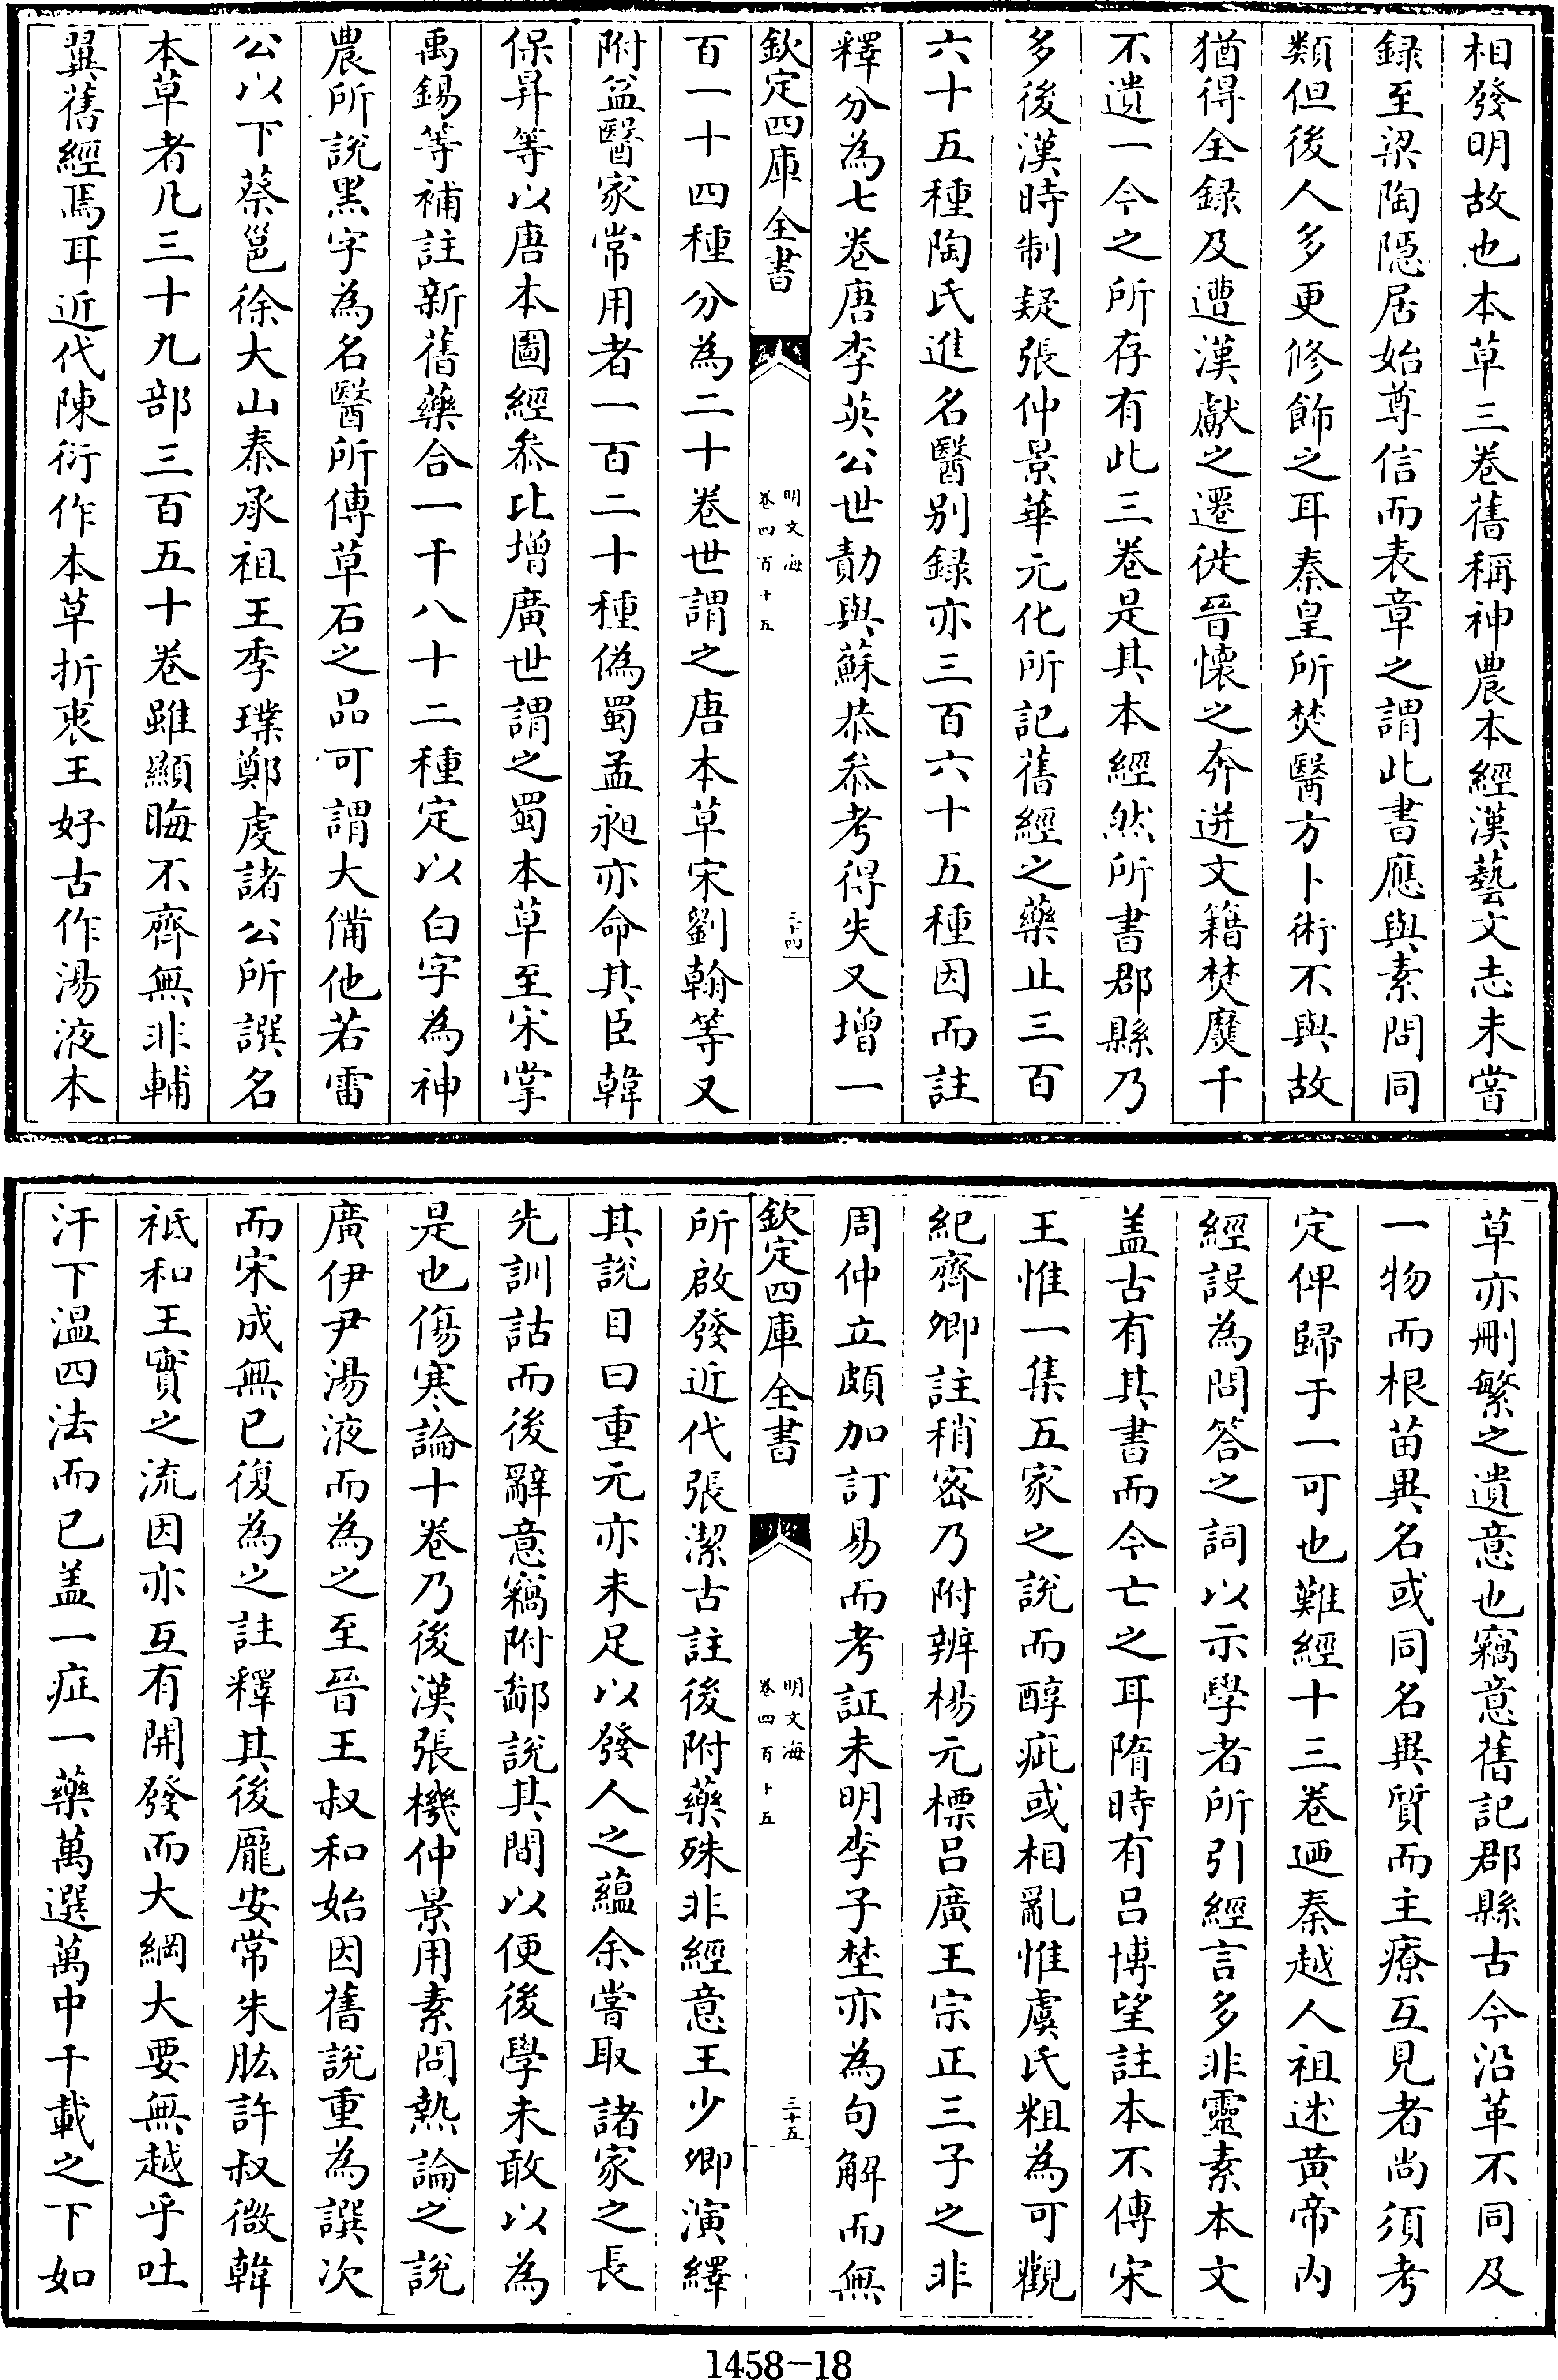 相發明故也本草三卷舊稱神農本經漢藝文志未嘗
録至梁陶隱居始尊信而表章之謂此書應與素問同
類但後人多更修飾之耳秦皇所焚醫方卜術不與故
猶得全録及遭漢獻之遷徙晉懷之奔迸文籍焚靡千
不遺一今之所存有此三卷是其本經然所書郡縣乃
多後漢時制疑張仲景華元化所記舊經之藥止三百
六十五種陶氏進名醫别録亦三百六十五種因而註
釋分為七卷唐李英公世勣與蘇恭叅考得失又增一
欽定四庫全書
明文海
卷四百十五
三十四
百一十四種分為二十卷世謂之唐本草宋劉翰等又
附益醫家常用者一百二十種偽蜀孟昶亦命其臣韓
保昇等以唐本圖經叅比增廣世謂之蜀本草至宋掌
禹錫等補註新舊藥合一千八十二種定以白字為神
農所說黑字為名醫所傳草石之品可謂大備他若雷
公以下蔡邕徐大山秦承祖王季璞鄭虔諸公所譔名
本草者凡三十九部三百五十卷雖顯晦不齊無非輔
翼舊經焉耳近代陳衍作本草折衷王好古作湯液本
草亦刪繁之遺意也竊意舊記郡縣古今沿革不同及
一物而根苗異名或同名異質而主療互見者尚須考
定俾歸于一可也難經十三卷廼秦越人祖述黄帝内
經設為問答之詞以示學者所引經言多非靈素本文
盖古有其書而今亡之耳隋時有吕博望註本不傳宋
王惟一集五家之說而醇疵或相亂惟虞氏粗為可觀
紀齊卿註稍密乃附辨楊元標吕廣王宗正三子之非
周仲立頗加訂易而考証未明李子埜亦為句解而無
欽定四庫全書
明文海
卷四百十五
三十五
所啟發近代張潔古註後附藥殊非經意王少卿演繹
其說目曰重元亦未足以發人之蘊余嘗取諸家之長
先訓詁而後辭意竊附鄙說其間以便後學未敢以為
是也傷寒論十卷乃後漢張機仲景用素問熱論之說
廣伊尹湯液而為之至晉王叔和始因舊說重為譔次
而宋成無已復為之註釋其後龐安常朱肱許叔微韓
祗和王實之流因亦互有開發而大綱大要無越乎吐
汗下温四法而已盖一症一藥萬選萬中千載之下如
1458-18